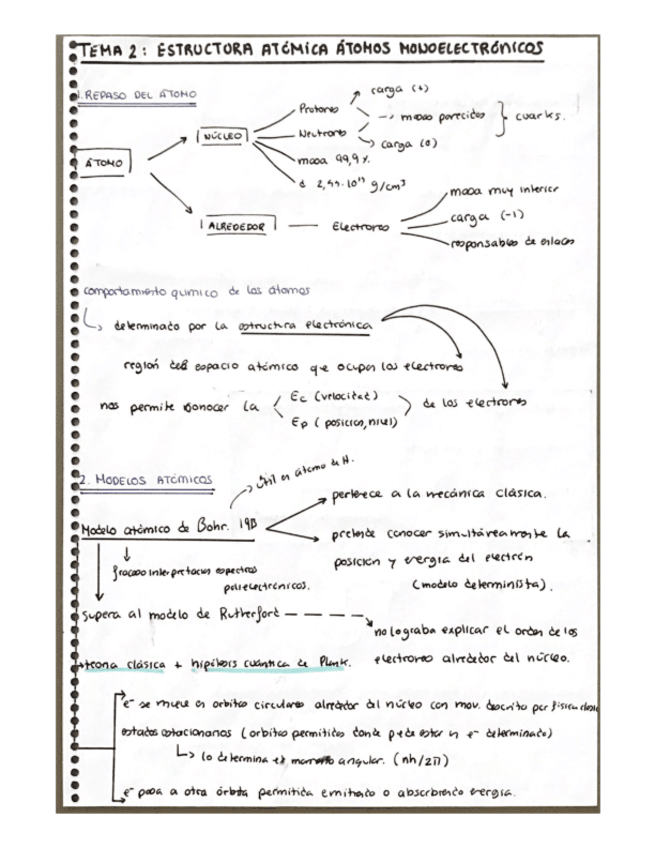 TEMA 2: ESTRUCTURA ATÓMICA ÁTOMOS MONOELECTRÓNICOS
1. REPASO DEL ÁTOMO
carga (+)
Protones
masas parecidas
cuarks.
NÚCLEO
Neutrones
carga (0)
ÁTOMO
masa 99,9%
masa muy inferior
carga (-1)
ALREDEDOR
Electrones
responsables de enlaces
comportamiento químico de los átomos
determinado por la estructura electrónica
región del espacio atómico que ocupan los electrones
nos permite conocer la
Ec (velocidad)
Ep (posición, nivel)
de los electrones
2. MODELOS ATÓMICOS
útil en átomo de H.
pertenece a la mecánica clásica.
Modelo atómico de Bohr. 1913
pretende conocer simultáneamente la
posición y energía del electrón
(modelo determinista).
fracaso interpretación espectros
polielectrónicos.
supera al modelo de Rutherford
no lograba explicar el orden de los
electrones alrededor del núcleo.
teoría clásica + hipótesis cuántica de Plank.
e⁻ se mueve en orbitas circulares alrededor del núcleo con mov. descrito por física
estados estacionarios (orbitas permitidas donde puede estar un e⁻ determinado)
lo determina momento angular. (nh/2π)
e⁻ pasa a otra órbita permitida emitiendo o absorbiendo energía.